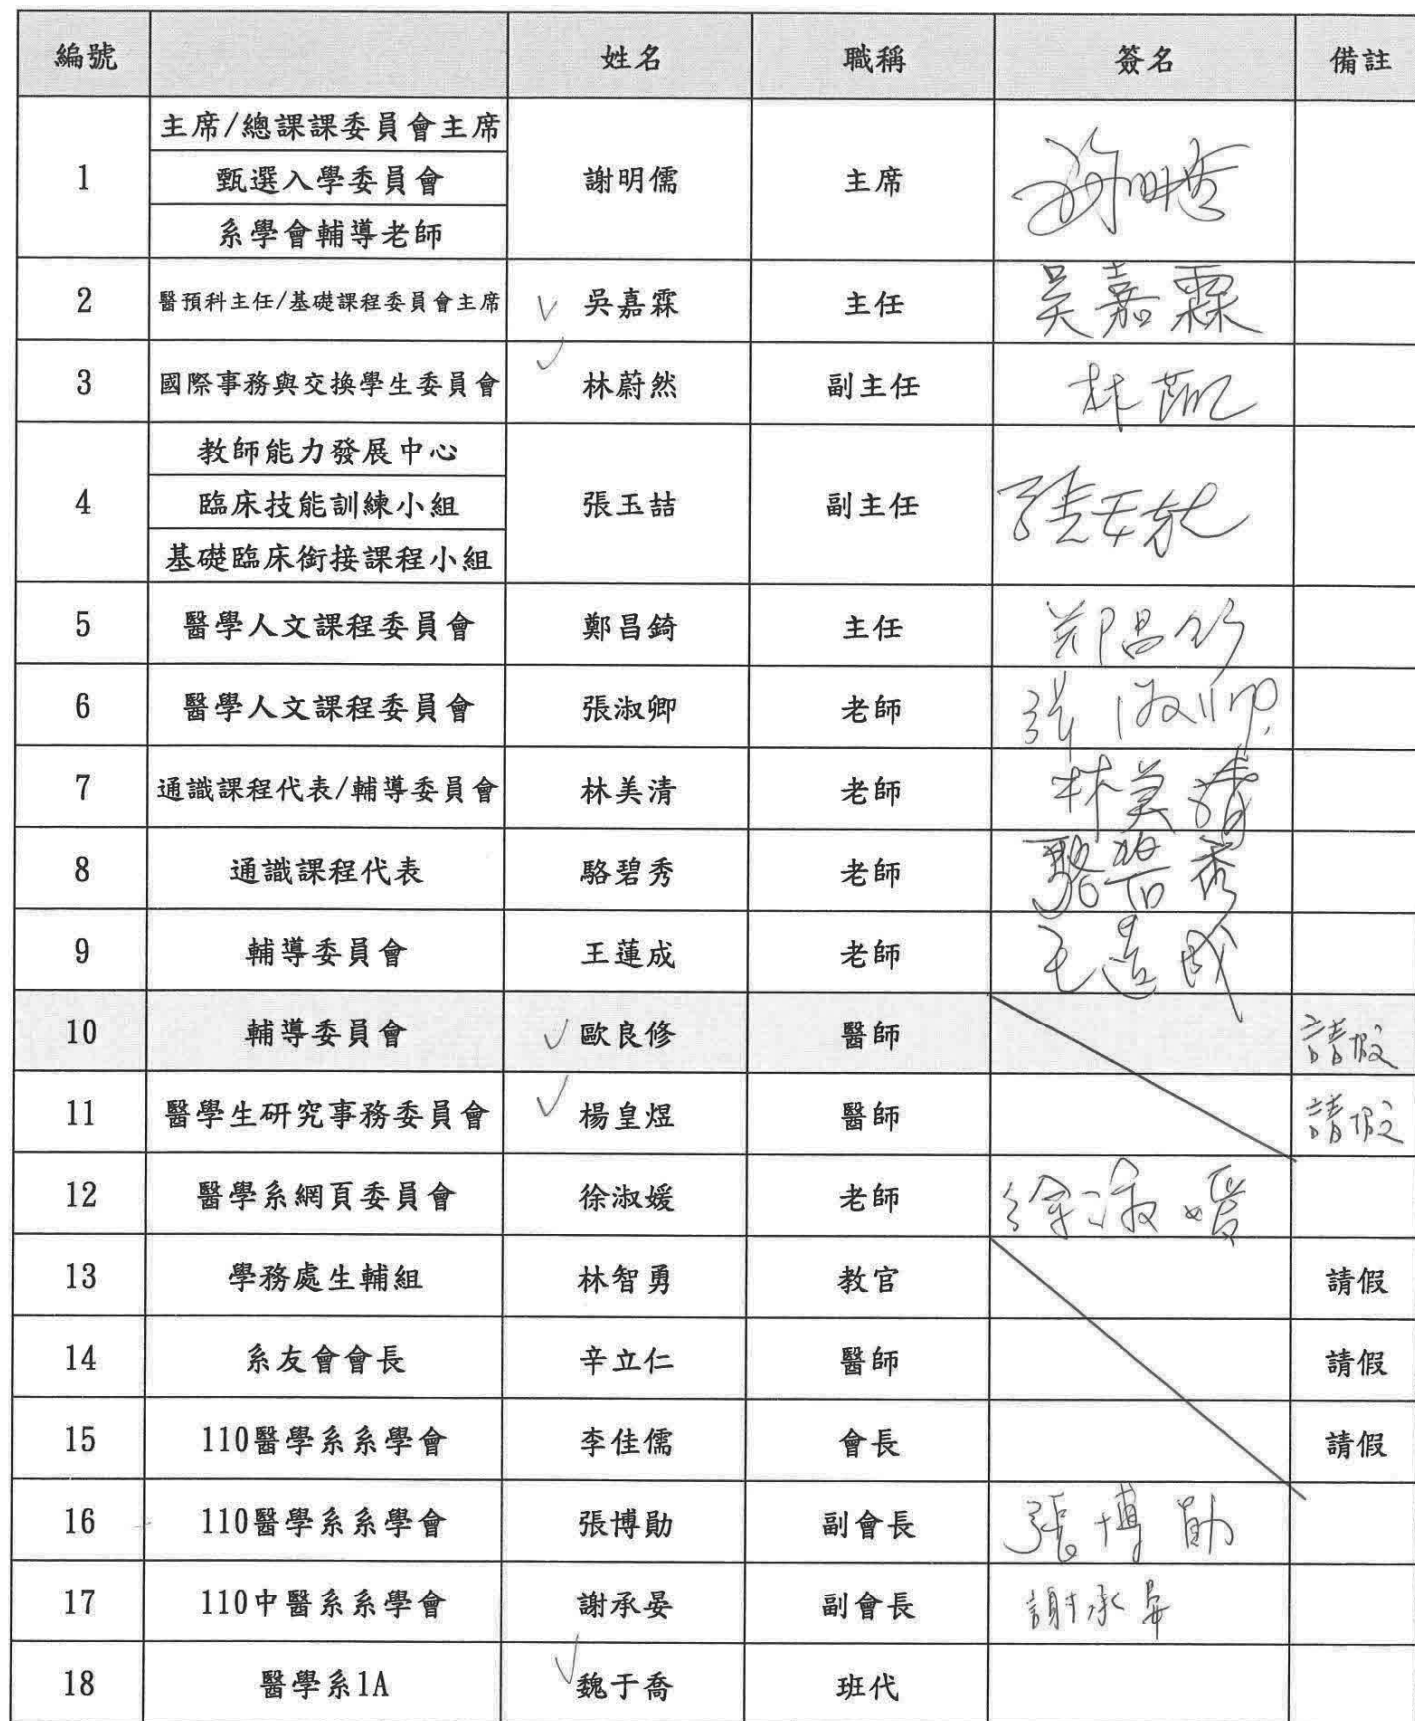 編號 姓名 職稱 簽名 備註
主席/總課課委員會主席
1 甄選入學委員會 謝明儒 主席
系學會輔導老師
2 醫預科主任/基礎課程委員會主席 吳嘉霖 主任 吳嘉霖
3 國際事務與交換學生委員會 林蔚然 副主任 林
教師能力發展中心
4 臨床技能訓練小組 張玉喆 副主任 張玉喆
基礎臨床銜接課程小組
5 醫學人文課程委員會 鄭昌錡 主任 鄭昌錡
6 醫學人文課程委員會 張淑卿 老師 張淑卿
7 通識課程代表/輔導委員會 林美清 老師 林美清
8 通識課程代表 駱碧秀 老師 駱碧秀
9 輔導委員會 王蓮成 老師 王蓮成
10 輔導委員會 歐良修 醫師 請假
11 醫學生研究事務委員會 楊皇煜 醫師 請假
12 醫學系網頁委員會 徐淑媛 老師 徐淑媛
13 學務處生輔組 林智勇 教官 請假
14 系友會會長 辛立仁 醫師 請假
15 110醫學系系學會 李佳儒 會長 請假
16 110醫學系系學會 張博勛 副會長 張博勛
17 110中醫系系學會 謝承晏 副會長 謝承晏
18 醫學系1A 魏于喬 班代